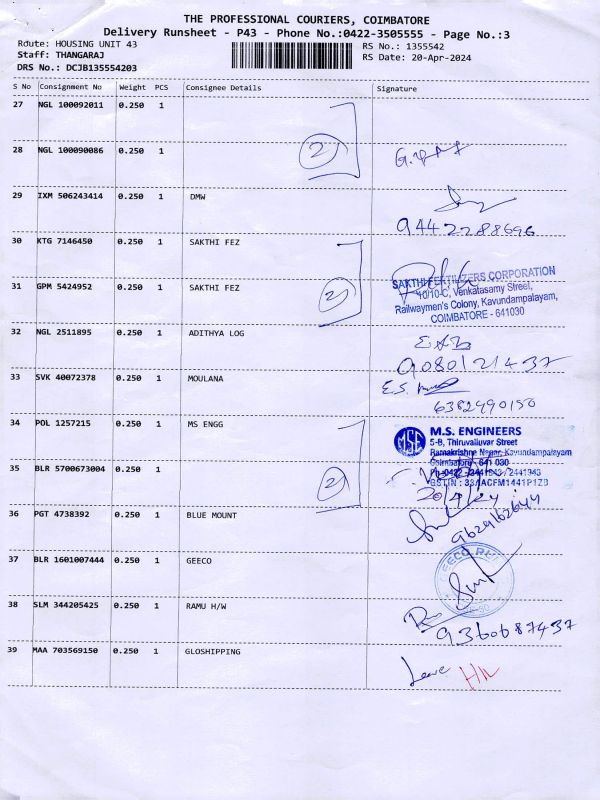 THE PROFESSIONAL COURIERS, COIMBATORE
Delivery Runsheet - P43 - Phone No.:0422-3505555 - Page No.:3
Route: HOUSING UNIT 43
RS No.: 1355542
Staff: THANGARAJ
RS Date: 20-Apr-2024
DRS No.: DCJB135554203
S No Consignment No Weight PCS Consignee Details Signature
27 NGL 100092011 0.250 1
2
28 NGL 100090086 0.250 1
29 IXM 506243414 0.250 1 DMW
9442288696
30 KTG 7146450 0.250 1 SAKTHI FEZ
2
31 GPM 5424952 0.250 1 SAKTHI FEZ
SAKTHI FERTILIZERS CORPORATION
10/10-C, Venkatasamy Street,
Railwaymen's Colony, Kavundampalayam,
COIMBATORE - 641030
32 NGL 2511895 0.250 1 ADITHYA LOG
9080121437
33 SVK 40072378 0.250 1 MOULANA
E.S.
6382490150
34 POL 1257215 0.250 1 MS ENGG
2
MSE
M.S. ENGINEERS
5-B, Thiruvalluvar Street
Ramakrishna Nagar, Kavundampalayam
Coimbatore - 641 030
Ph: 0422 - 2441943 / 2441943
GSTIN : 33AACFM1441P1Z0
20/4/24
35 BLR 5700673004 0.250 1
36 PGT 4738392 0.250 1 BLUE MOUNT
9629162644
37 BLR 1601007444 0.250 1 GEECO
38 SLM 344205425 0.250 1 RAMU H/W
9360687437
39 MAA 703569150 0.250 1 GLOSHIPPING
Leave